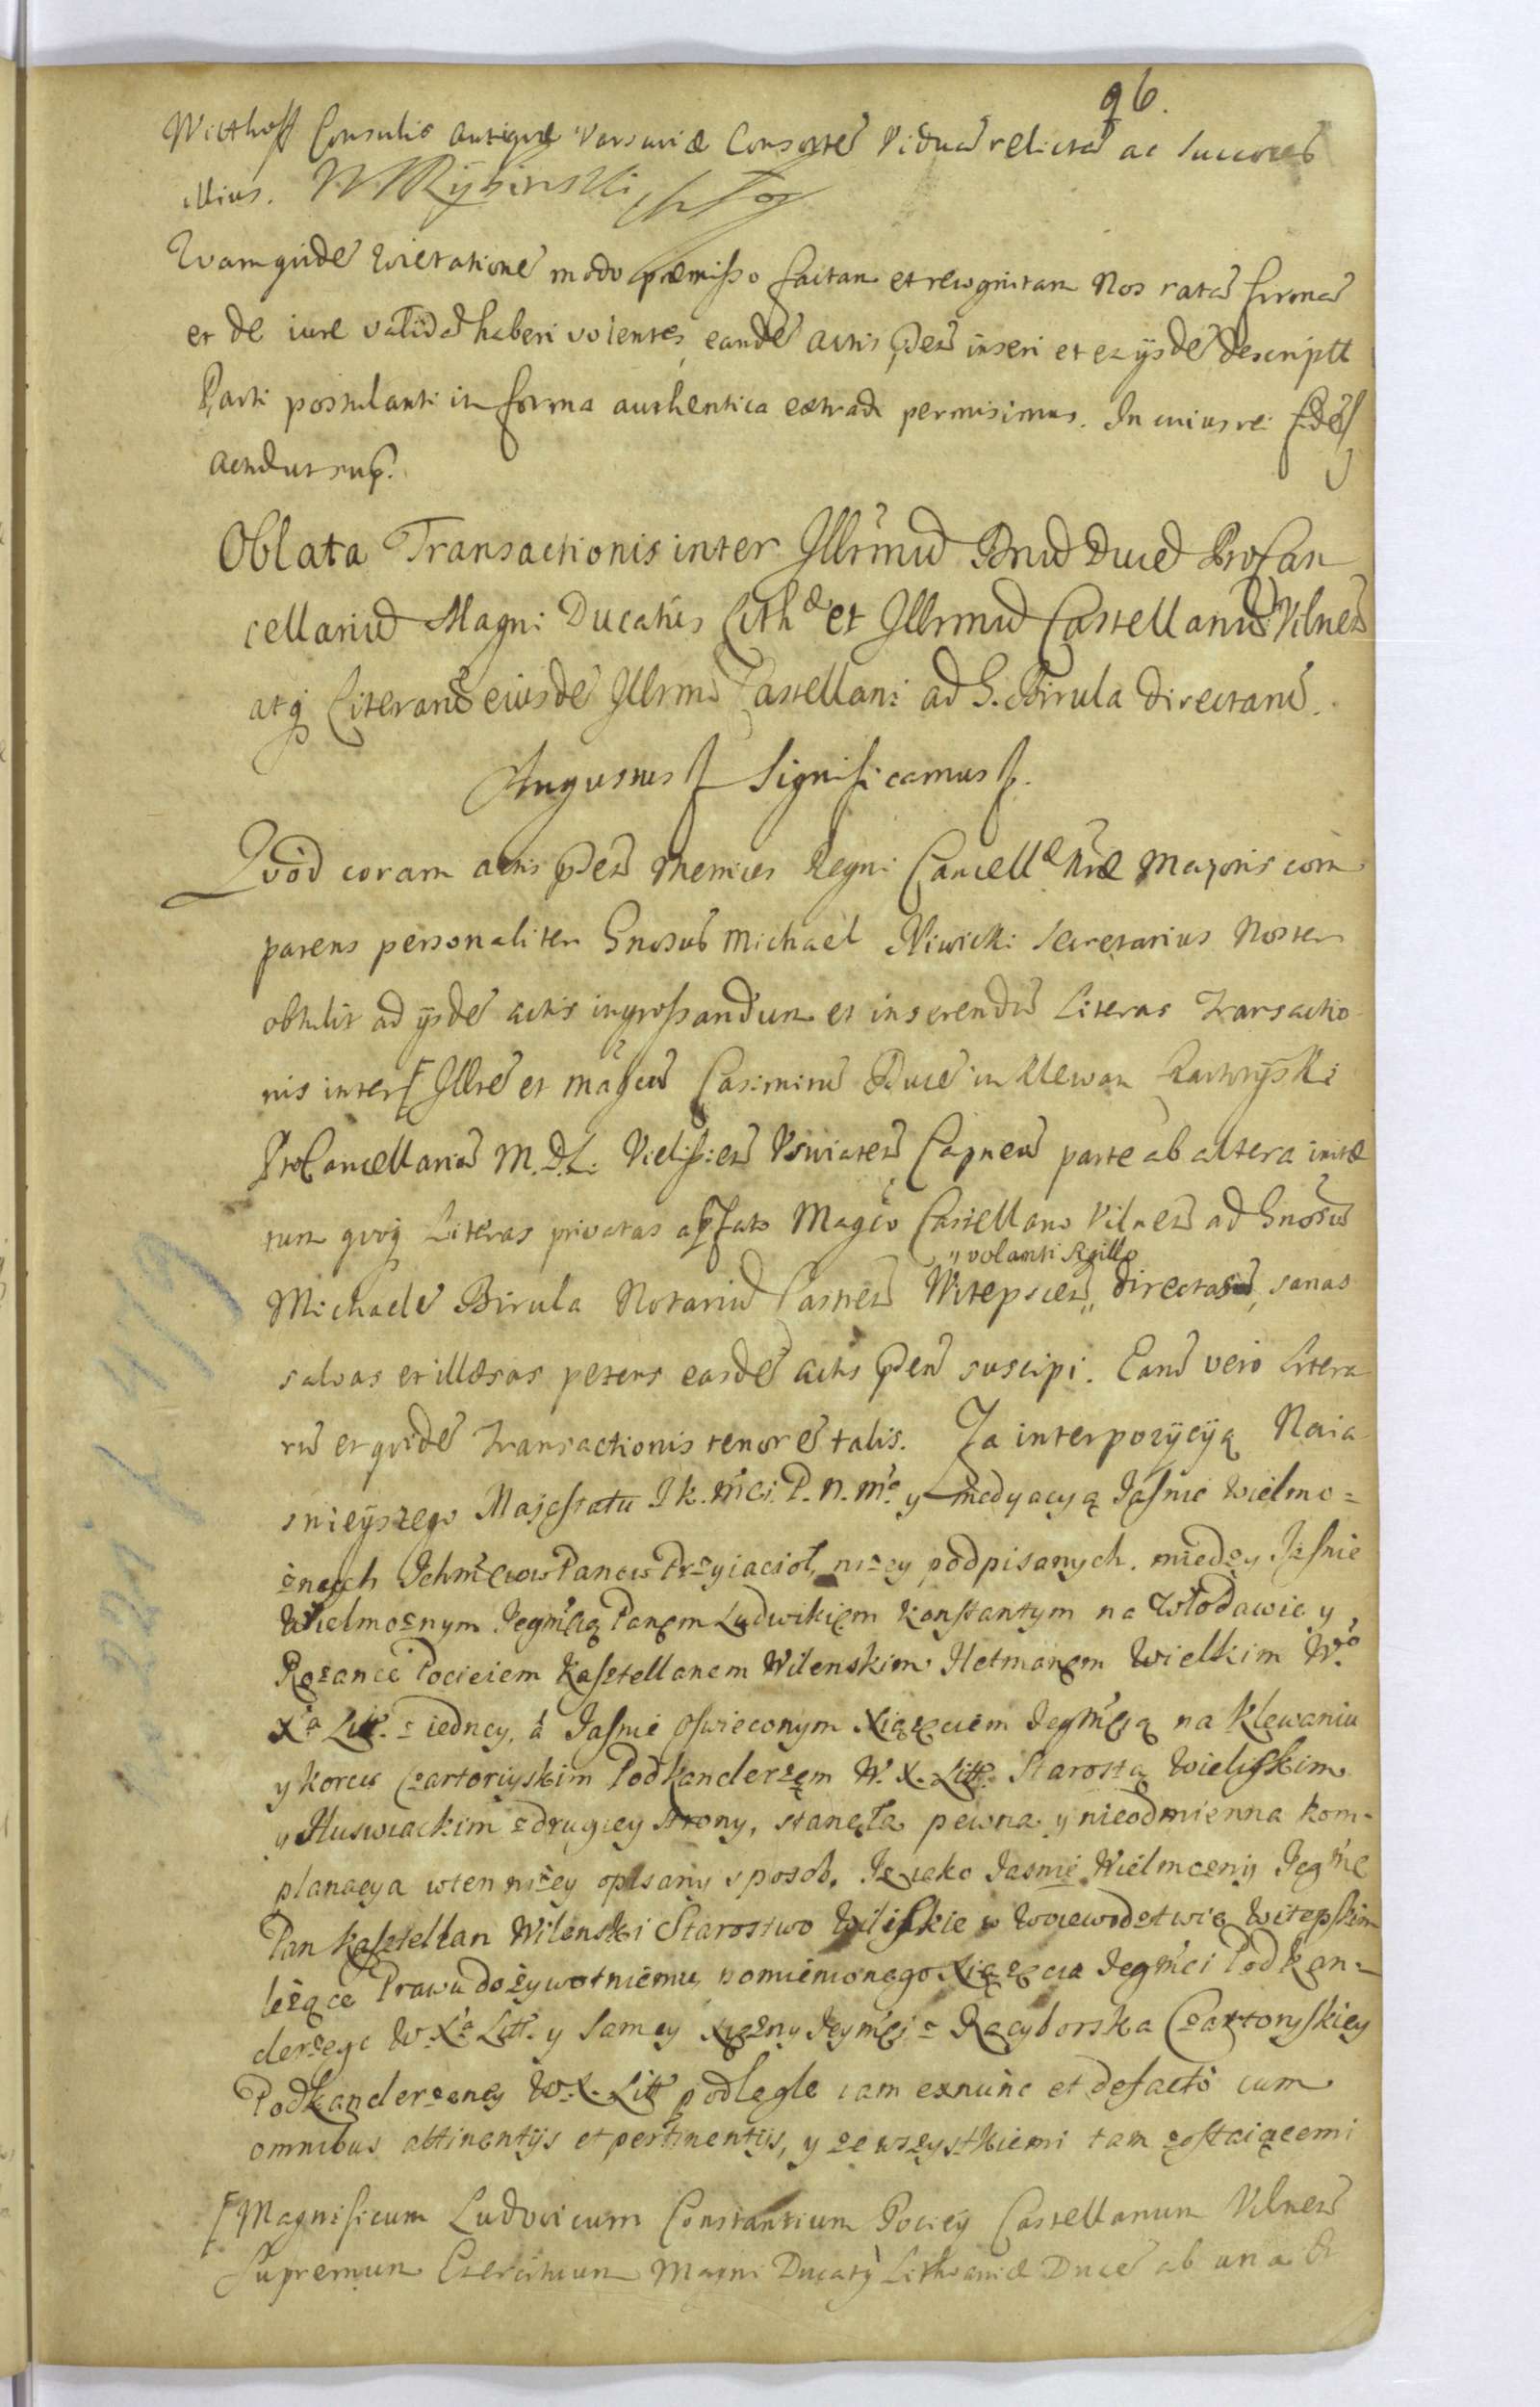 96.
Witthoff Consulis antiquæ Varsaviæ Consorte Vidua relicta ac Succores
illius. W Rybinski
Quamquide quietatione modo præmisso factam et recognitam Nos rata firma
et de iure valida haberi volentes, eande actis pñtt inseri et ex ijsde descriptt
Parti postulanti in forma authentica extradi permisimus. In cuius rei fide
Actu ut sup.
Oblata Transactionis inter Illrmu Pnu Duce ProCan
cellariu Magni Ducatus Lithæ et Illrmu Castellanu Vilnen
atq Literaru eiusde Illrmi Castellani ad G. Birula directaru.
Augustus Significamus
Quod coram actis pñtt Metrices Regni Cancellæ Nræ Majoris com
parens personaliter Gnosus Michael Niwicki Secretarius Noster
obtulit ad ijsde actis ingrossandum et inserendu Literas Transactio
nis inter [Illre et magcu Casimiru Duce in Klewan Czartoryski
ProCancellariu M.D.L. Vielissien Usviaten Capneu parte ab altera initæ
tum quoq Literas privatas a pfato Magco Castellano Vilnen ad Gnosu
„volanti sigillo
Michaele Birula Notariu Castren Witepscien „directas, sanas
salvas et illæsas petens easde actis pñtt suscipi. Earu vero Litera
ru et quide Transactionis tenor e talis. Za interpozycyą Naia
snieyszego Majestatu J K. Mci. P. N. Mo. y medyacyą Jasnie Wielmo=
żnych Ichmciow Panow Przyiacioł, niżey podpisanych. miedzy Jasnie
Wielmoznym Jegmcią Panem Ludwikiem Konstantym na Włodawie y
Rożance Pocieiem Kasztellanem Wilenskim Hetmanem Wielkim Wo
Xa Litt. z iedney, á Jasnie Oswieconym Xiązęciem Jegmcią na Klewaniu
y Korcu Czartoriyskim Podkanclerzem W. X. Litt. Starostą Wieliskim
y Huswiackim z drugiey strony, staneła pewna y nieodmienna kom-
planacya wten niżey opisany sposob. Iż iako Jasnie Wielmożny Jegmc
Pan Kasztellan Wilenski Starostwo Wiliskie w Woiewodztwie Witepskim
leżące Prawu dożywotniemu pomienionego Xiązęcia Jegmci Podkan=
clerzego W. Xa Litt. y samey Xiężny Jeymci z Racyborska Czartoryskiey
Podkanclerzeney W. X. Litt podlegle iam exnunc et defacto cum
omnibus attinentijs et pertinentijs, y ze wszystkiemi tam zostaiącemi
[Magnificum Ludovicum Constantium Pociey Castellanum Vilnen
Supremum Exercituum Magni Ducatus Lithvaniæ Duce ab una &